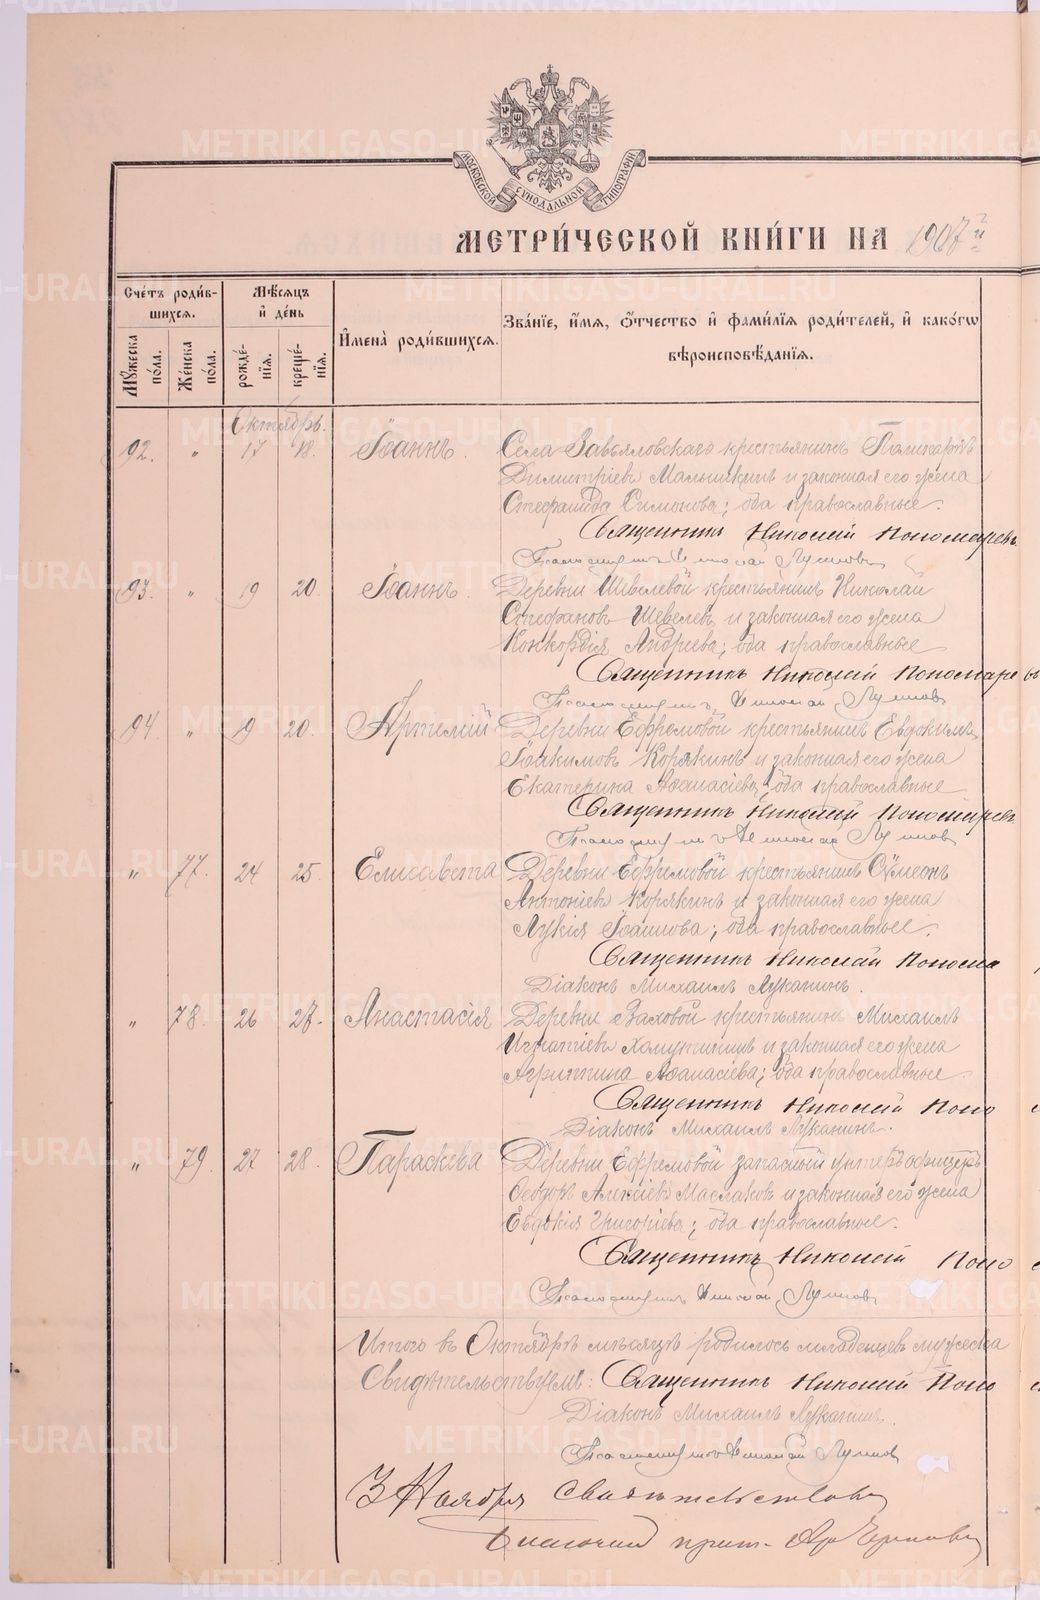 МОСКОВСКОЙ СУНОДАЛЬНОЙ ТИПОГРАФІИ
МЕТРИ́ЧЕСКОЙ КНИ́ГИ НА 1907й
Сче́тъ роди́вшихся.
Мѣ́сяцъ и҆ де́нь
И҆мена̀ роди́вшихся.
Зва́нїе, и҆́мя, ѻ҆́тчество и҆ фами́лїя роди́телей, и҆ како́гѡ
вѣроисповѣ́данїя.
Мꙋ́жеска по́ла.
Же́нска по́ла.
рожде́нїя.
креще́нїя.
Октябрь.
92. " 17 18. Іоаннъ. Села Завьяловскаго крестьянинъ
Димитріевъ и законная его жена
Стефанида Симонова; оба православные.
Священникъ Николай Пономаревъ
Псаломщикъ Николай
93. " 19 20. Іоаннъ. Деревни Шевелевой крестьянинъ Николай
Стефановъ Шевелевъ и законная его жена
Конкордія Андреева; оба православные
Священникъ Николай Пономаревъ
Псаломщикъ Николай
94. " 19 20. Артемій Деревни Ефремовой крестьянинъ Евдокимъ
Іоакимовъ Корякинъ и законная его жена
Екатерина Аѳанасіева; оба православные
Священникъ Николай Пономаревъ
Псаломщикъ Николай
" 77. 24 25. Елисавета Деревни Ефремовой крестьянинъ Сѵмеонъ
Антоніевъ Корякинъ и законная его жена
Лукія Іоаннова; оба православные.
Священникъ Николай Понома
Діаконъ Михаилъ Луканинъ.
" 78. 26 27. Анастасія Деревни крестьянинъ Михаилъ
Игнатіевъ и законная его жена
Агриппина Аѳанасіева; оба православные
Священникъ Николай Поно
Діаконъ Михаилъ Луканинъ.
" 79. 27 28. Параскева Деревни Ефремовой запасный унтеръ офицеръ
Ѳеодоръ Алексіевъ Маслаковъ и законная его жена
Евдокія Григоріева; оба православные.
Священникъ Николай Поно
Псаломщикъ Николай
Итого въ Октябрѣ мѣсяцѣ родилось младенцевъ мужеска
Свидѣтельствуемъ: Священникъ Николай Поно
Діаконъ Михаилъ Луканинъ.
Псаломщикъ Николай
3 Ноября свидѣтельствовалъ
METRIKI.GASO-URAL.RU